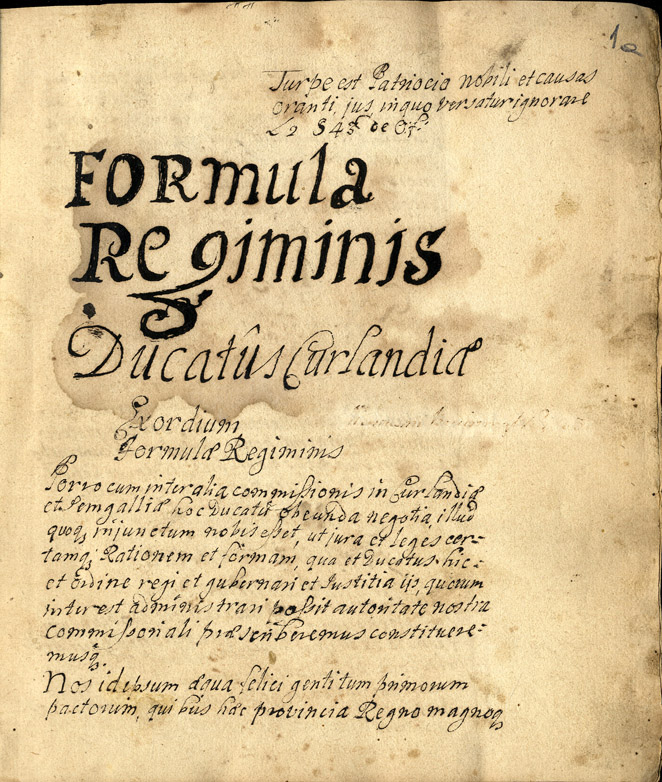 1a
Turpe est Patriocio nobili et causas
oranti, jus, in quo versatur ignorare
L 2 § 43
FORmula
Regiminis
Ducatûs Curlandiæ
Exordium
Formulæ Regiminis
Porro cum inter alia commissionis in Curlandiæ
et Semgalliæ hoc Ducatu obeunda negotia, illud
quoq; injunctum nobis esset, ut jura et leges cer-
tamq; Rationem et formam, qua et Ducatus hic
et ordine regi et gubernari et Justitia ijs, quorum
interest administrari possit autoritate nostra
commissoriali præscriberemus constituere-
musq.
Nos id ipsum æqua felici genti tum primorum
pactorum, quibus hæc provincia Regno magnoq